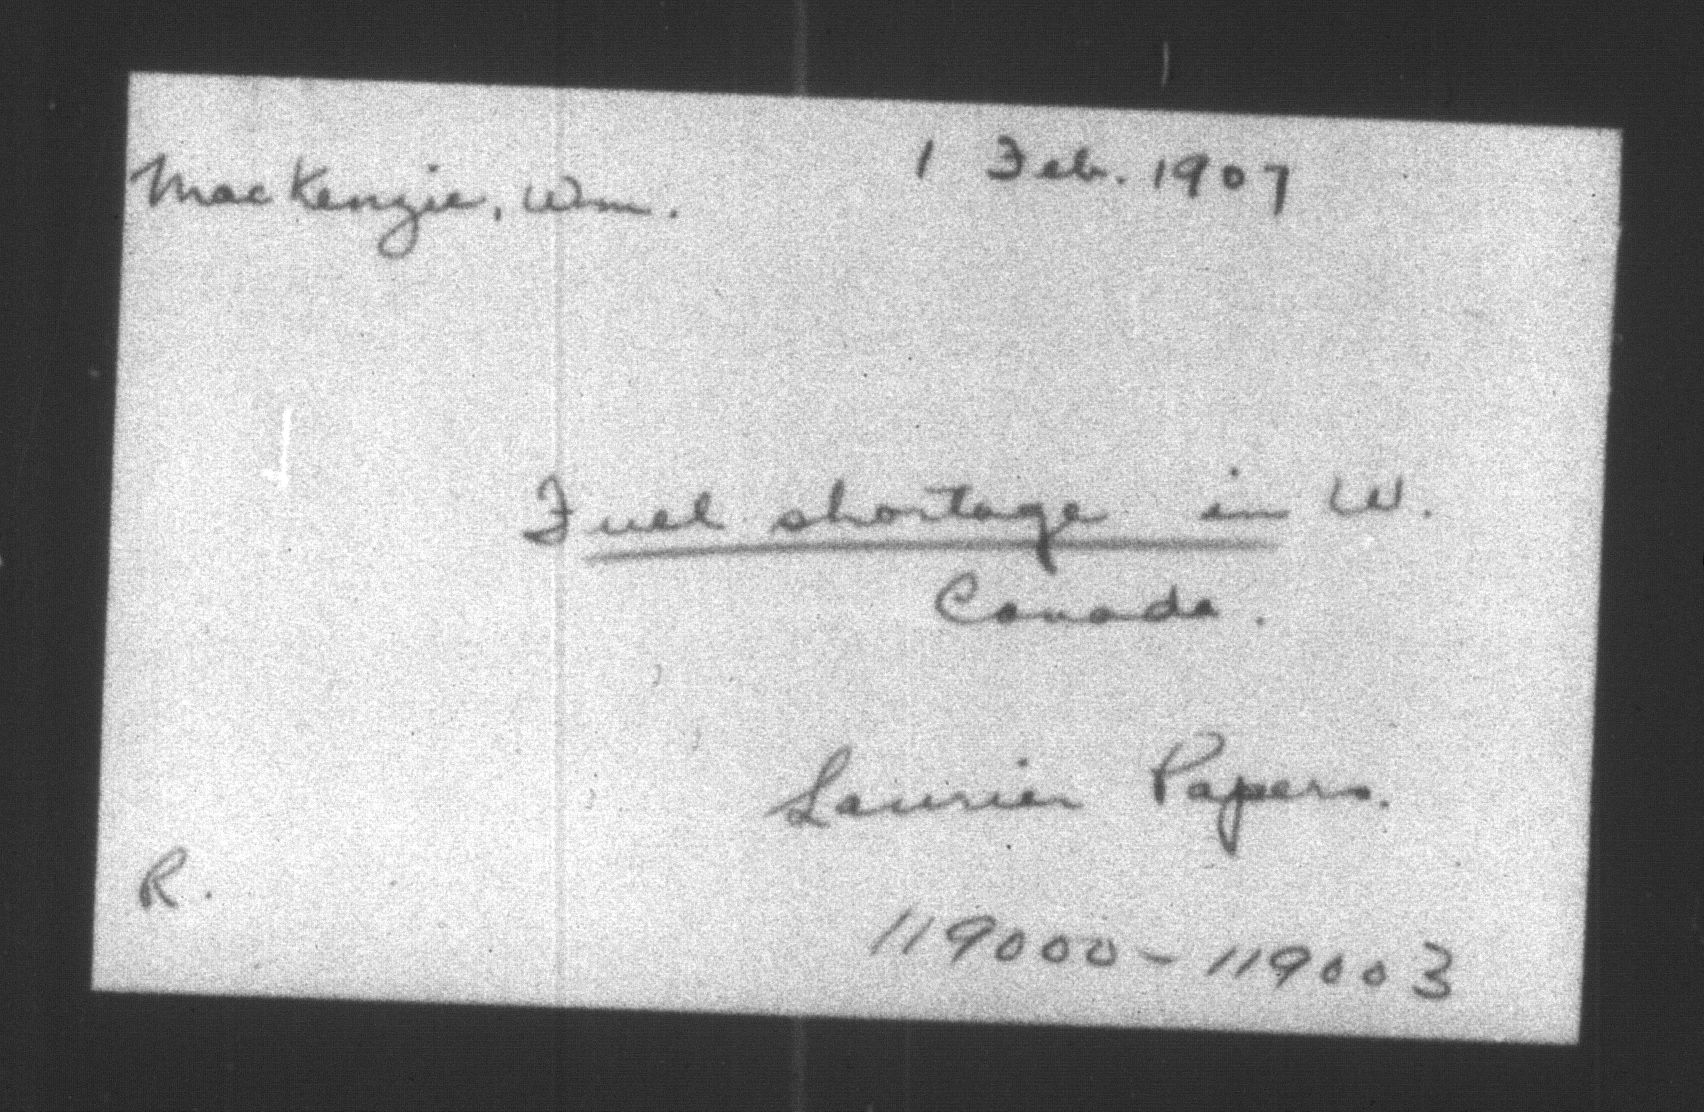 MacKenzie, Wm.
1 Feb. 1907
Fuel shortage in W.
Canada.
Laurier Papers.
R.
119000-119003